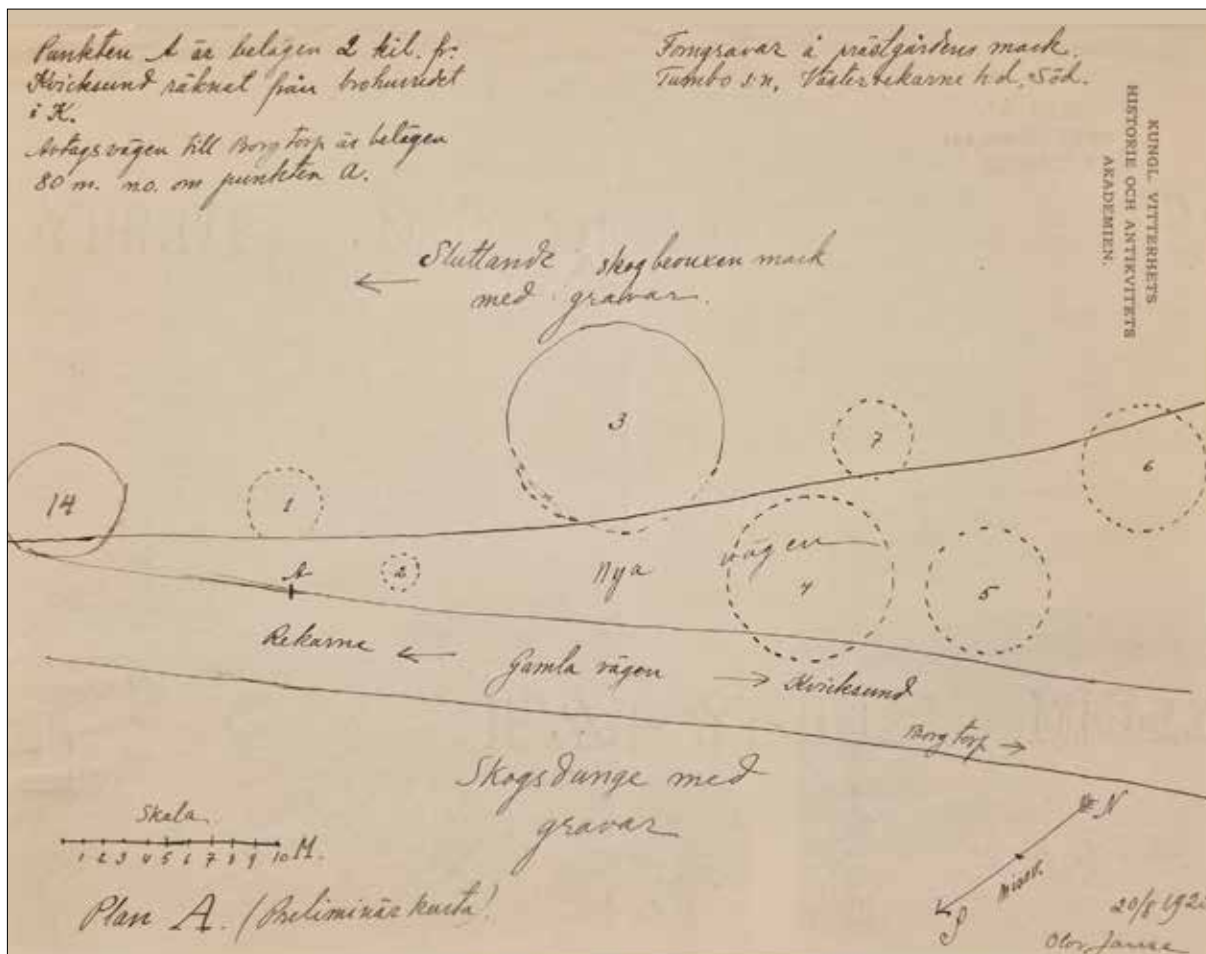 Punkten A är belägen 2 kil. fr.
Kvicksund räknat från brohuvudet
i K.
Avtagsvägen till Borgtorp är belägen
80 m. n.o. om punkten A.
Forngravar å prästgårdens mark.
Tumbo s:n, Västerrekarne hd, Söd.
KUNGL. VITTERHETS
HISTORIE OCH ANTIKVITETS
AKADEMIEN.
Sluttande skogbevuxen mark
med gravar.
3
7
6
14
1
A
2
Nya
vägen
4
5
Rekarne
Gamla vägen
Kvicksund
Borgtorp
Skogsdunge med
gravar
Skala.
1 2 3 4 5 6 7 8 9 10 M.
N
S
Plan A. (Preliminär karta)
20/8
Olov Janse